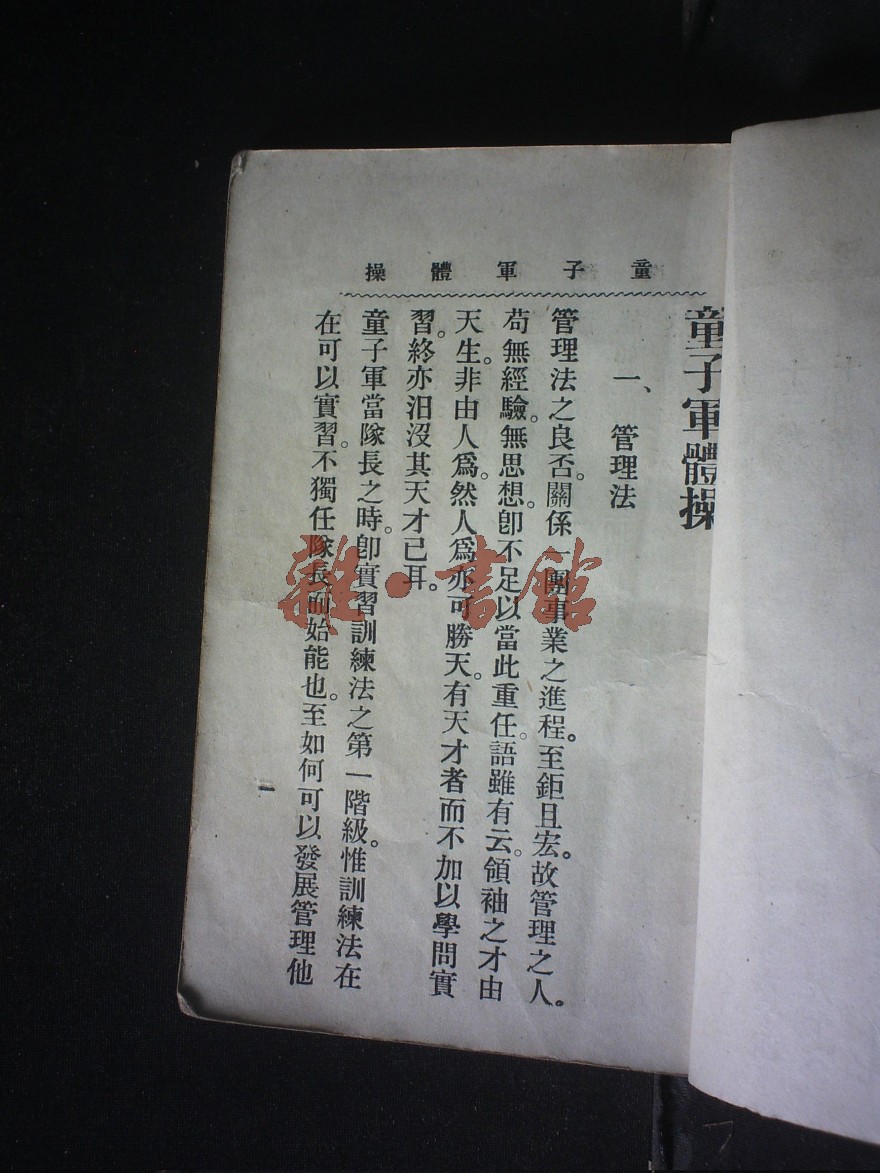 童子軍體操
童子軍體操
一、管理法
管理法之良否。關係一團事業之進程。至鉅且宏。故管理之人。
苟無經驗。無思想。卽不足以當此重任。語雖有云。領袖之才由
天生。非由人爲。然人爲亦可勝天。有天才者而不加以學問實
習。終亦汨沒其天才已耳。
童子軍當隊長之時。卽實習訓練法之第一階級。惟訓練法在
在可以實習。不獨任隊長而始能也。至如何可以發展管理他
一
雜·書館